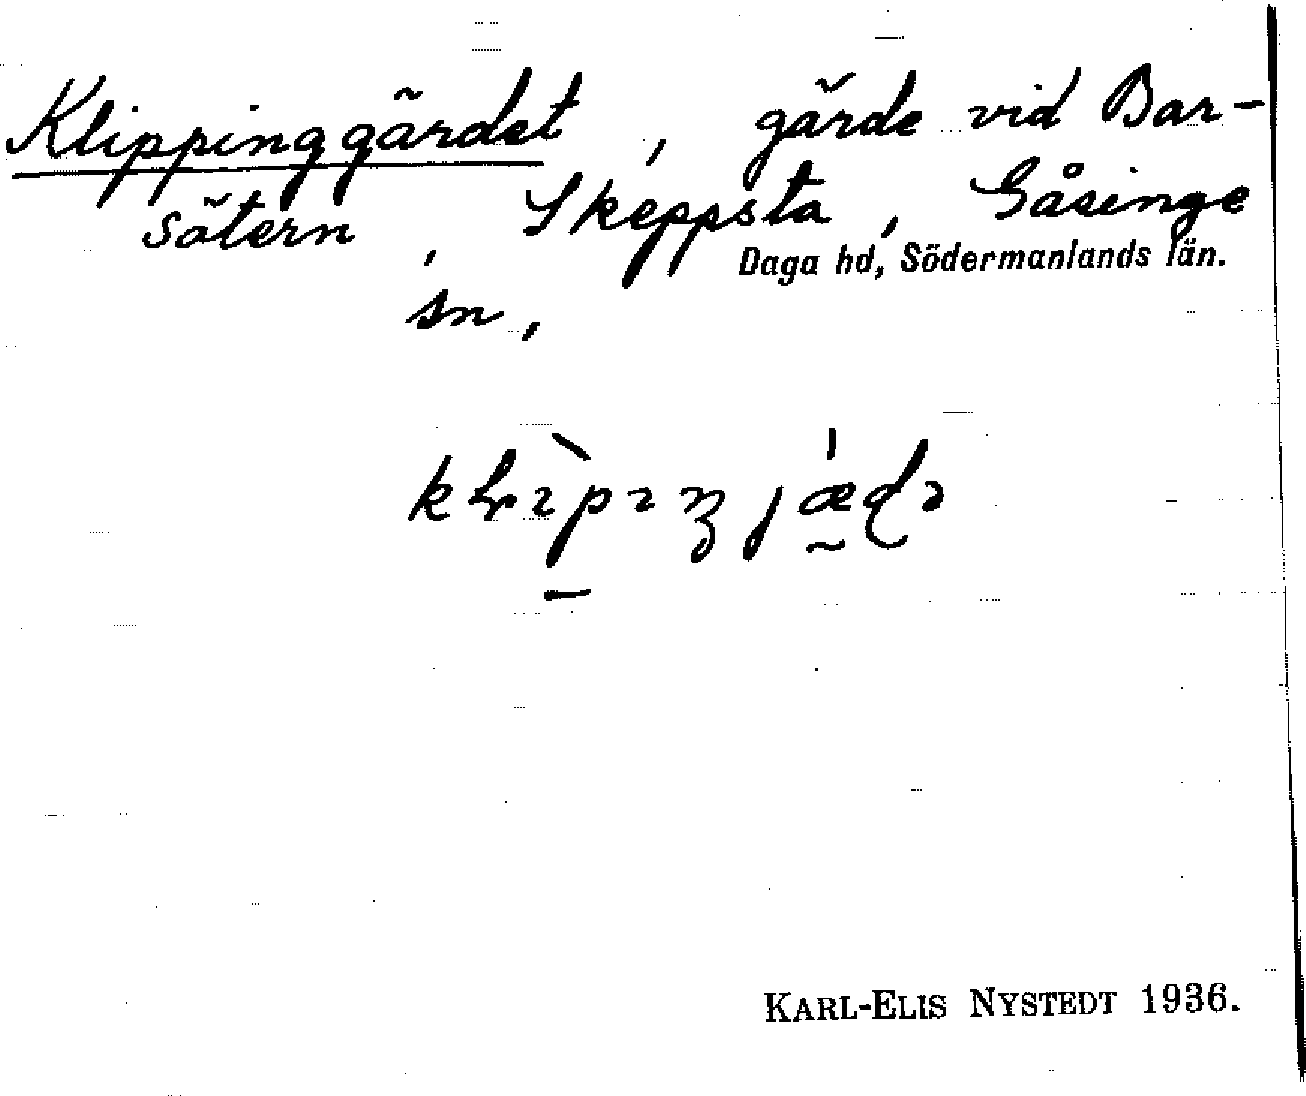 Klippinggärdet, gärde vid Bar-
sätern, Skeppsta, Gåsinge
Daga hd, Södermanlands län.
sn,
KARL-ELIS NYSTEDT 1936.